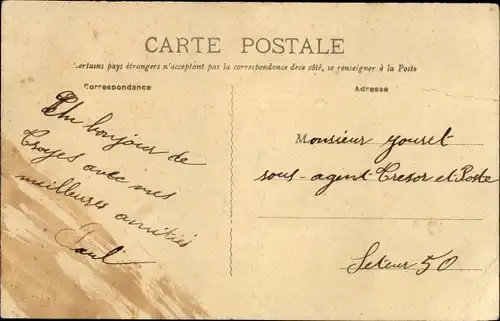 CARTE POSTALE
Certains pays étrangers n'acceptent pas la correspondance de ce côté, se renseigner à la Poste
Correspondance
Adresse
Un bonjour de
Troyes avec mes
meilleures amitiés
Paul
Monsieur Youret
sous-agent Tresor et Poste
Secteur 50